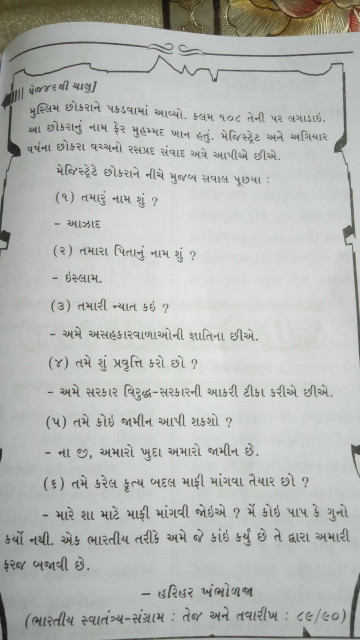 પેજ૪૨થી ચાલુ]
મુસ્લિમ છોકરાને પકડવામાં આવ્યો. કલમ ૧૦૮ તેની પર લગાડાઇ.
આ છોકરાનું નામ ફેર મુહમ્મદ ખાન હતું. મેજિસ્ટ્રેટ અને અગિયાર
વર્ષના છોકરા વચ્ચનો રસપ્રદ સંવાદ અત્રે આપીએ છીએ.
મેજિસ્ટ્રેટે છોકરાને નીચે મુજબ સવાલ પૂછયા :
(૧) તમારું નામ શું ?
- આઝાદ
(૨) તમારા પિતાનું નામ શું ?
- ઇસ્લામ.
(૩) તમારી ન્યાત કઇ ?
- અમે અસહકારવાળાઓની જ્ઞાતિના છીએ.
(૪) તમે શું પ્રવૃત્તિ કરો છો ?
- અમે સરકાર વિરુદ્ધ-સરકારની આકરી ટીકા કરીએ છીએ.
(૫) તમે કોઇ જામીન આપી શકશો ?
- ના જી, અમારો ખુદા અમારો જામીન છે.
(૬) તમે કરેલ કૃત્ય બદલ માફી માંગવા તૈયાર છો ?
- મારે શા માટે માફી માંગવી જોઇએ ? મેં કોઇ પાપ કે ગુનો
કર્યો નથી. એક ભારતીય તરીકે અમે જે કાંઇ કર્યું છે તે દ્વારા અમારી
ફરજ બજાવી છે.
– હરિહર ખંભોળજા
(ભારતીય સ્વાતંત્ર્ય-સંગ્રામ : તેજ અને તવારીખ : ૮૯/૯૦)